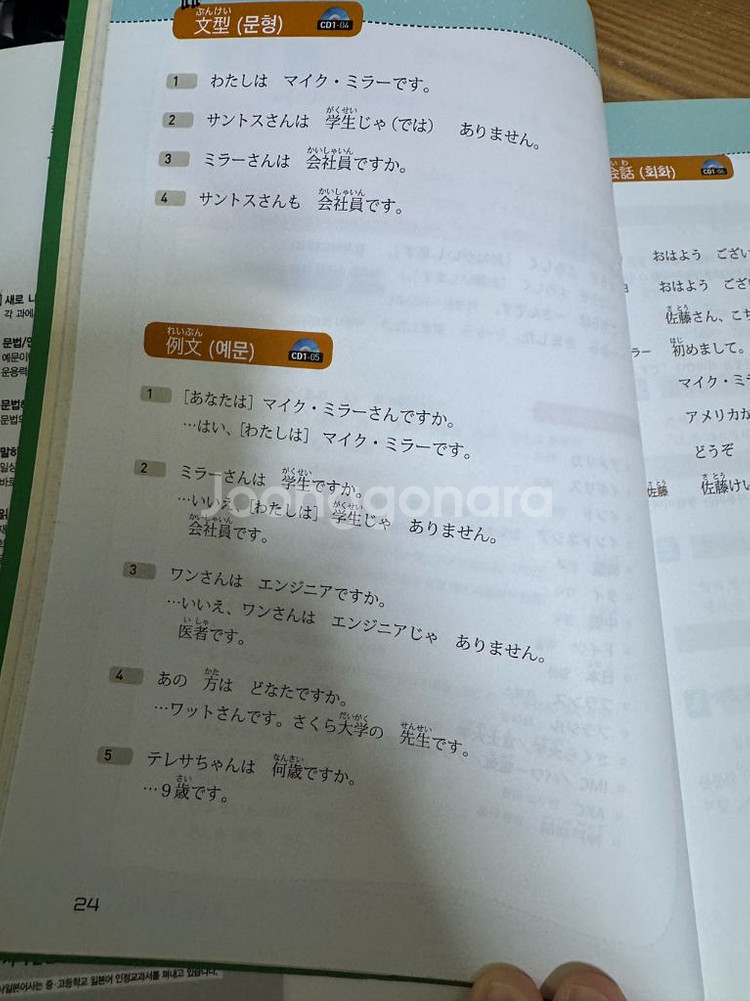 ぶんけい
文型 (문형) CD1-04
1 わたしは マイク・ミラーです。
がくせい
2 サントスさんは 学生じゃ(では) ありません。
かいしゃいん
3 ミラーさんは 会社員ですか。
かいしゃいん
4 サントスさんも 会社員です。
れいぶん
例文 (예문) CD1-05
1 [あなたは] マイク・ミラーさんですか。
…はい、[わたしは] マイク・ミラーです。
がくせい
2 ミラーさんは 学生ですか。
がくせい
…いいえ、[わたしは] 学生じゃ ありません。
かいしゃいん
会社員です。
3 ワンさんは エンジニアですか。
…いいえ、ワンさんは エンジニアじゃ ありません。
いしゃ
医者です。
かた
4 あの 方は どなたですか。
だいがく せんせい
…ワットさんです。さくら大学の 先生です。
なんさい
5 テレサちゃんは 何歳ですか。
さい
…9歳です。
24
Joonggonara
会話 (회화) CD1-06
おはよう
おはよう
さとう
佐藤さん、
はじ
初めまして。
マイク・
アメリカ
どうぞ
さとう
佐藤
さとう
佐藤
새로
각 과에
예문이
운용력
문법
일상
일본어사는 중·고등학교 일본어 인정교과서를 펴내고 있습니다.